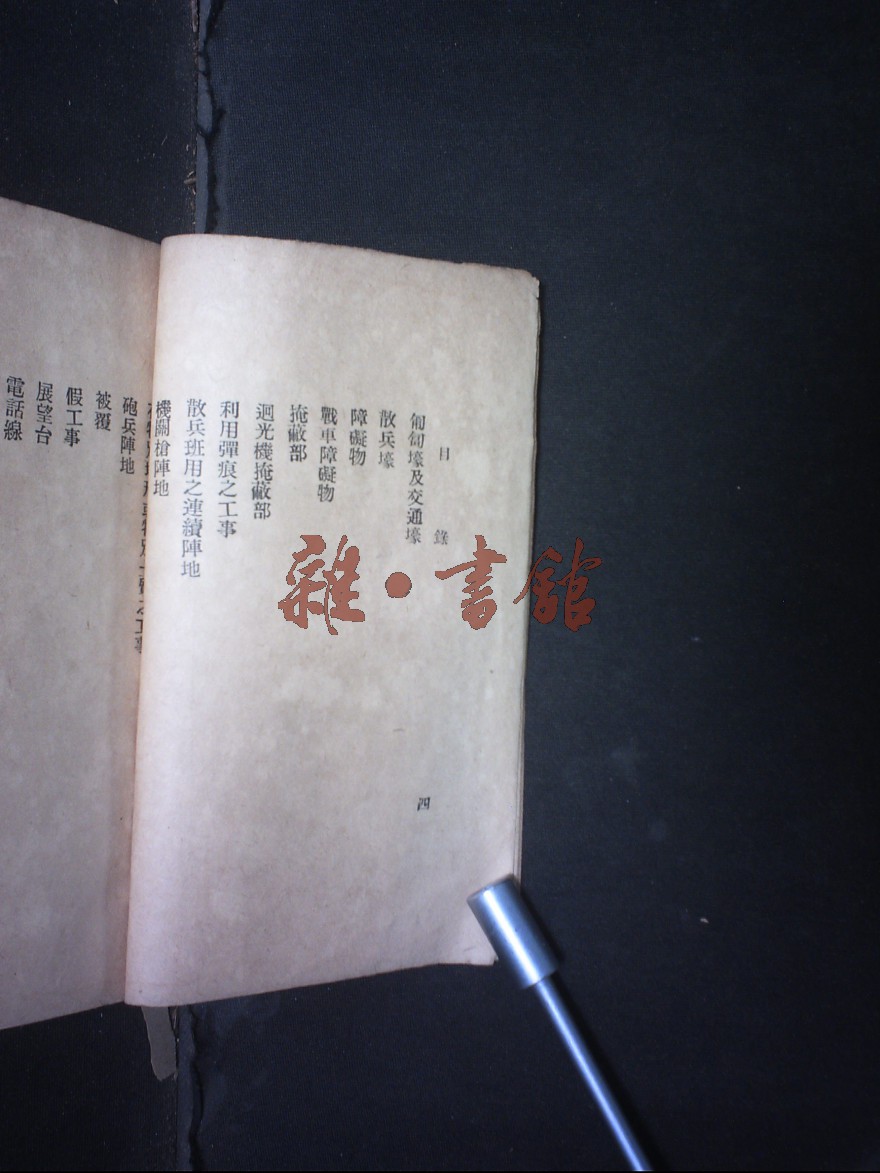 目錄
四
匍匐壕及交通壕
散兵壕
障礙物
戰車障礙物
掩蔽部
迴光機掩蔽部
利用彈痕之工事
散兵班用之連續陣地
機關槍陣地
砲兵陣地
被覆
假工事
展望台
電話線
雜·書館